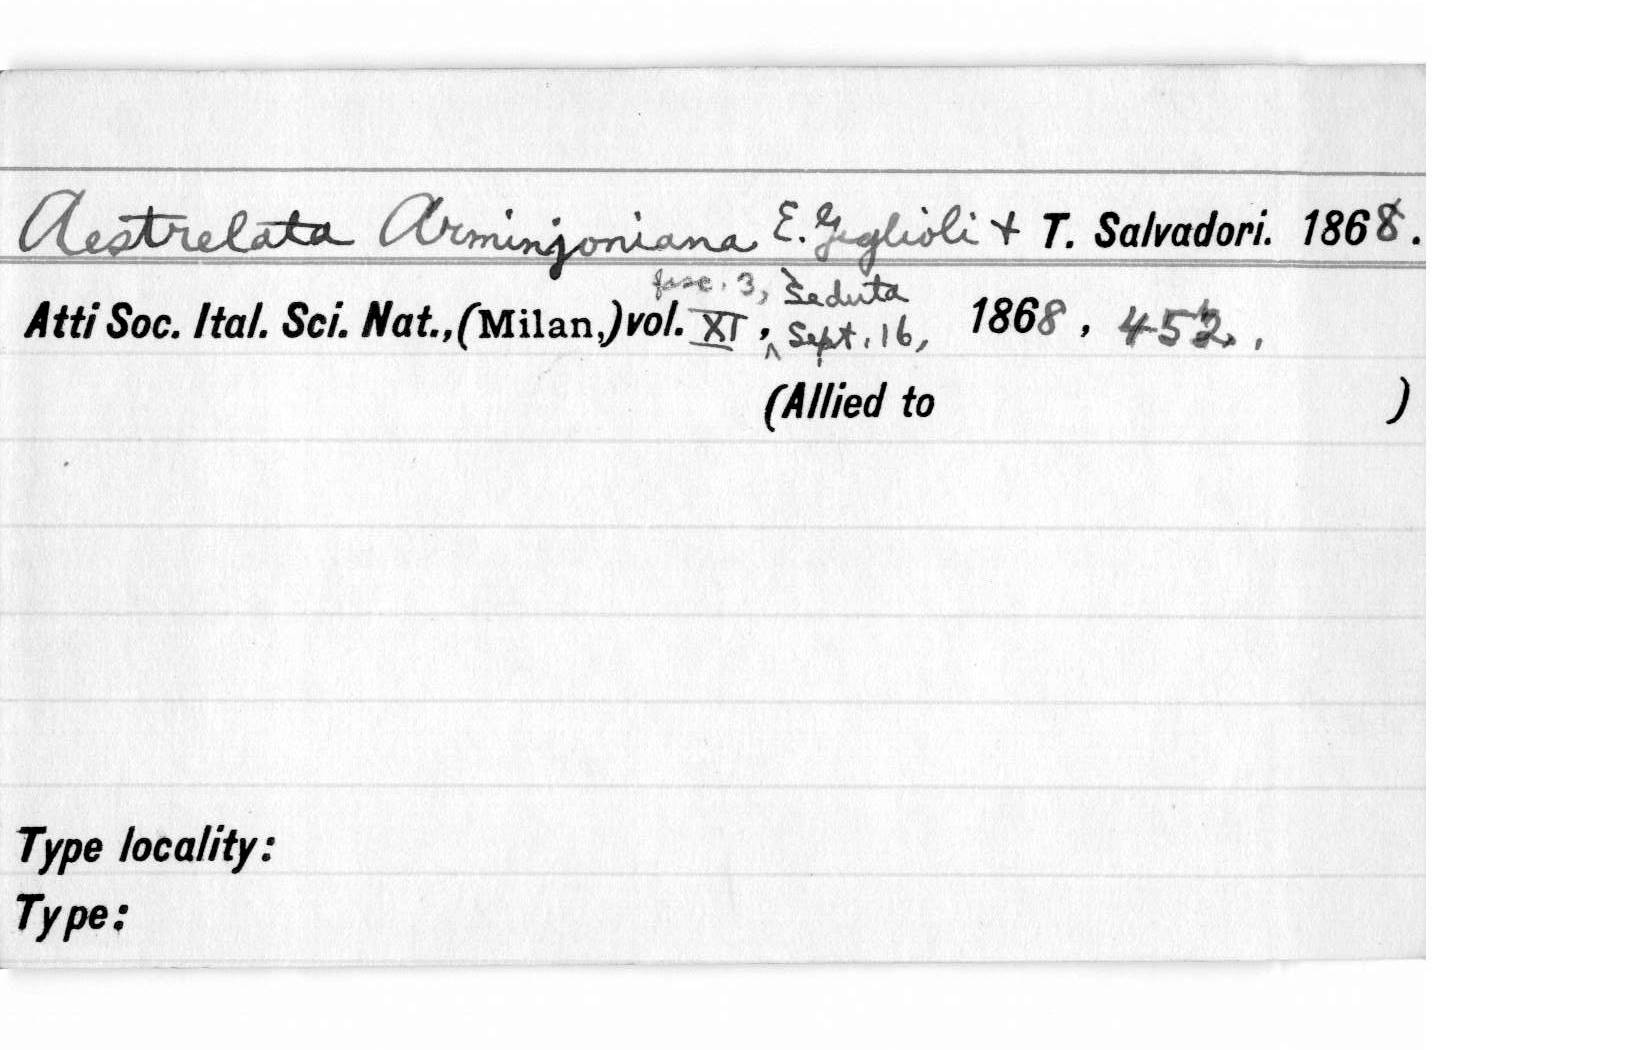 Aestrelata Arminjoniana E. Giglioli + T. Salvadori. 1868.
fasc. 3, Seduta
Atti Soc. Ital. Sci. Nat., (Milan,) vol. XI, ^ Sept. 16, 1868, 452.,
(Allied to )
Type locality:
Type: